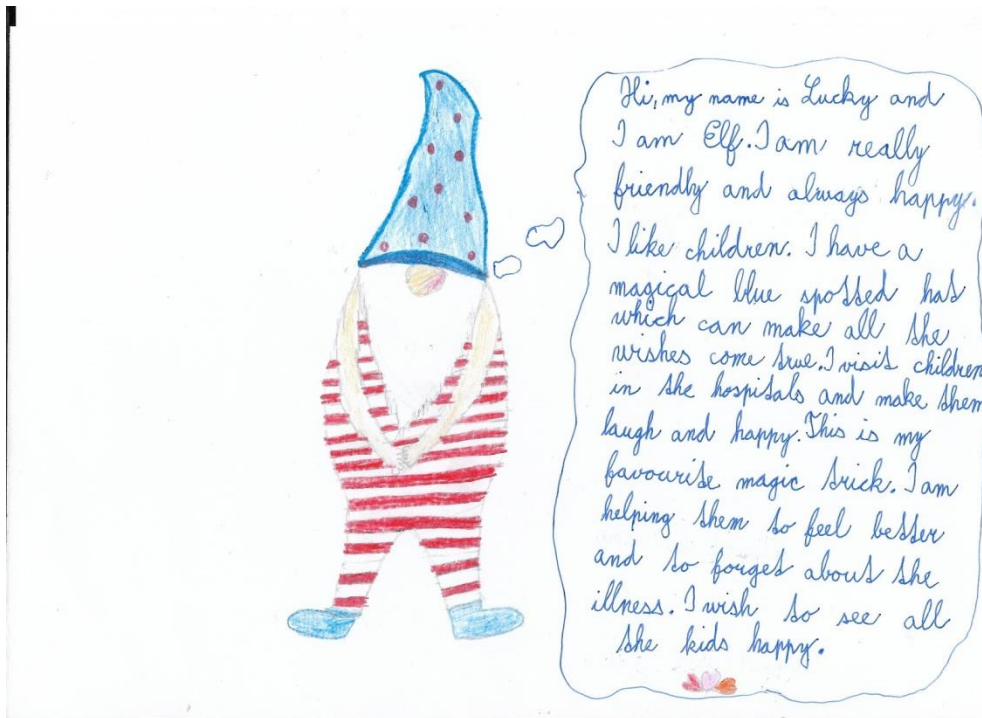 Hi, my name is Lucky and
I am Elf. I am really
friendly and always happy.
I like children. I have a
magical blue spotted hat
which can make all the
wishes come true. I visit children
in the hospitals and make them
laugh and happy. This is my
favourite magic trick. I am
helping them to feel better
and to forget about the
illness. I wish to see all
the kids happy.